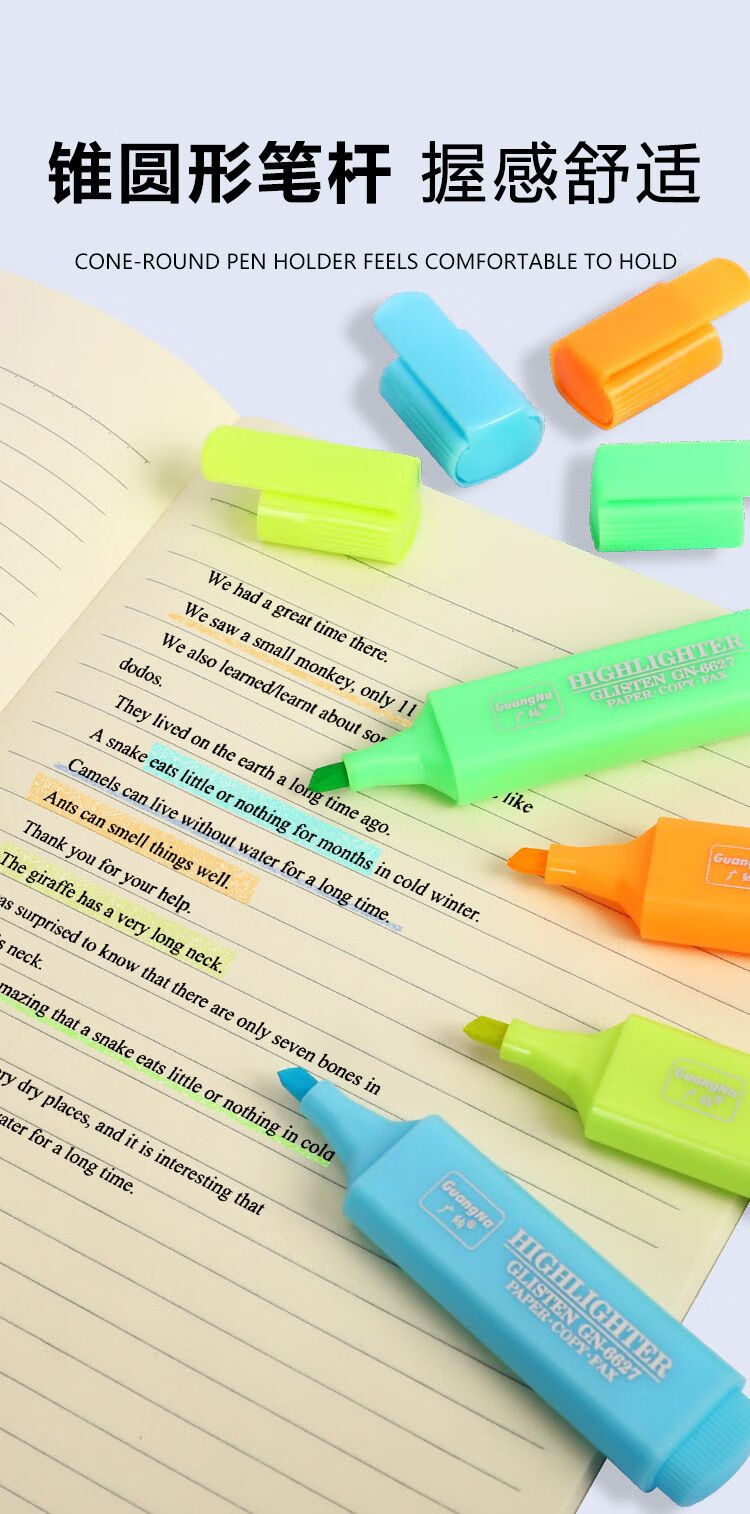 锥圆形笔杆 握感舒适
CONE-ROUND PEN HOLDER FEELS COMFORTABLE TO HOLD
We had a great time there.
We saw a small monkey, only 11
We also learned/learnt about
like
dodos.
They lived on the earth a long time ago.
A snake eats little or nothing for months in cold winter.
Camels can live without water for a long time.
Ants can smell things well.
Thank you for your help.
The giraffe has a very long neck.
surprised to know that there are only seven bones in
neck.
that a snake eats little or nothing in cold
dry places, and it is interesting that
for a long time.
GuangNa
广纳®
HIGHLIGHTER
GLISTEN GN-6627
PAPER·COPY·FAX
GuangNa
广纳®
GuangNa
广纳®
HIGHLIGHTER
GLISTEN GN-6627
PAPER·COPY·FAX